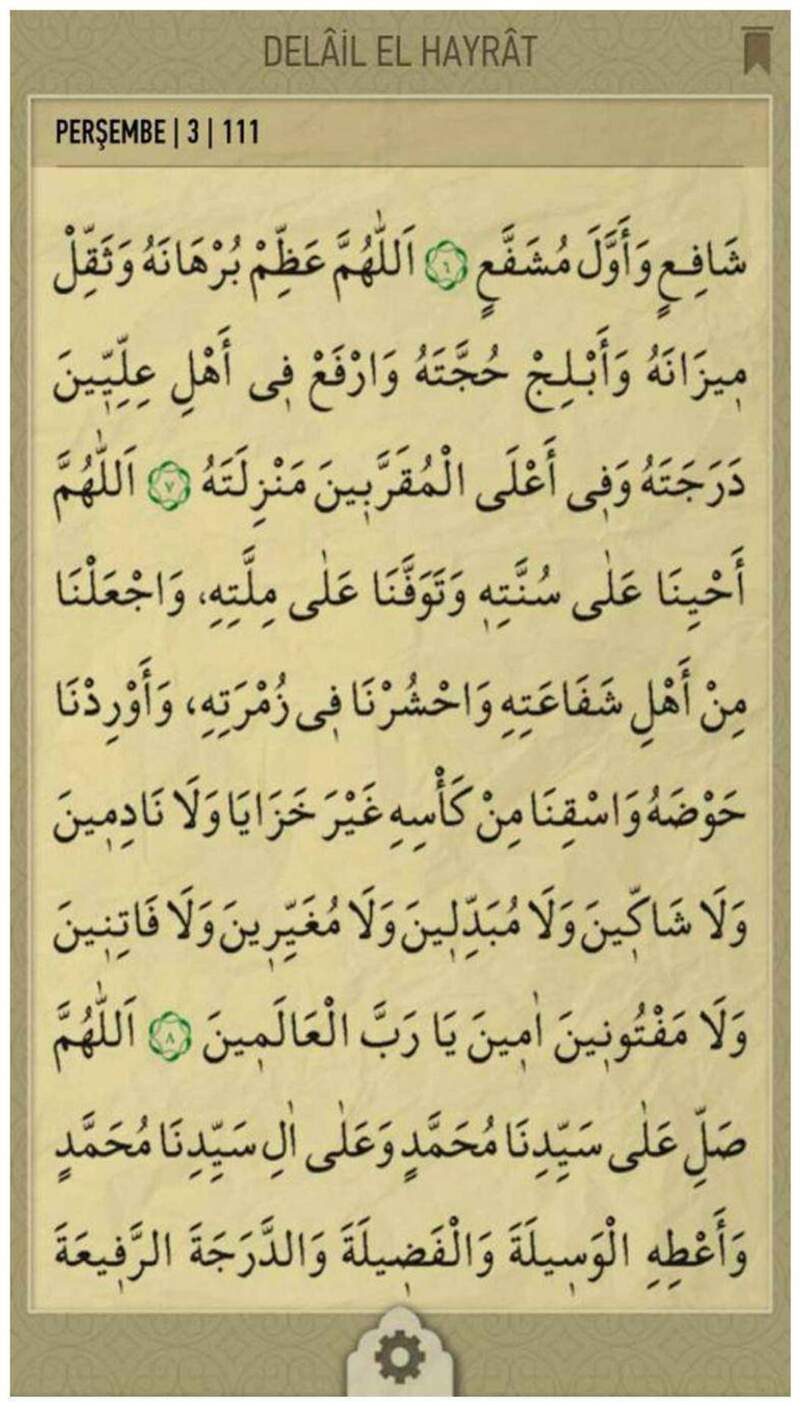 DELÂİL EL HAYRÂT
PERŞEMBE | 3 | 111
شَافِعٍ وَأَوَّلَ مُشَفَّعٍ ٦ اَللّٰهُمَّ عَظِّمْ بُرْهَانَهُ وَثَقِّلْ
مِيزَانَهُ وَأَبْلِجْ حُجَّتَهُ وَارْفَعْ فِى أَهْلِ عِلِّيِّينَ
دَرَجَتَهُ وَفِى أَعْلَى الْمُقَرَّبِينَ مَنْزِلَتَهُ ٧ اَللّٰهُمَّ
أَحْيِنَا عَلٰى سُنَّتِهِ وَتَوَفَّنَا عَلٰى مِلَّتِهِ، وَاجْعَلْنَا
مِنْ أَهْلِ شَفَاعَتِهِ وَاحْشُرْنَا فِى زُمْرَتِهِ، وَأَوْرِدْنَا
حَوْضَهُ وَاسْقِنَا مِنْ كَأْسِهِ غَيْرَ خَزَايَا وَلَا نَادِمِينَ
وَلَا شَاكِّينَ وَلَا مُبَدِّلِينَ وَلَا مُغَيِّرِينَ وَلَا فَاتِنِينَ
وَلَا مَفْتُونِينَ اٰمِينَ يَا رَبَّ الْعَالَمِينَ ٨ اَللّٰهُمَّ
صَلِّ عَلٰى سَيِّدِنَا مُحَمَّدٍ وَعَلٰى اٰلِ سَيِّدِنَا مُحَمَّدٍ
وَأَعْطِهِ الْوَسِيلَةَ وَالْفَضِيلَةَ وَالدَّرَجَةَ الرَّفِيعَةَ